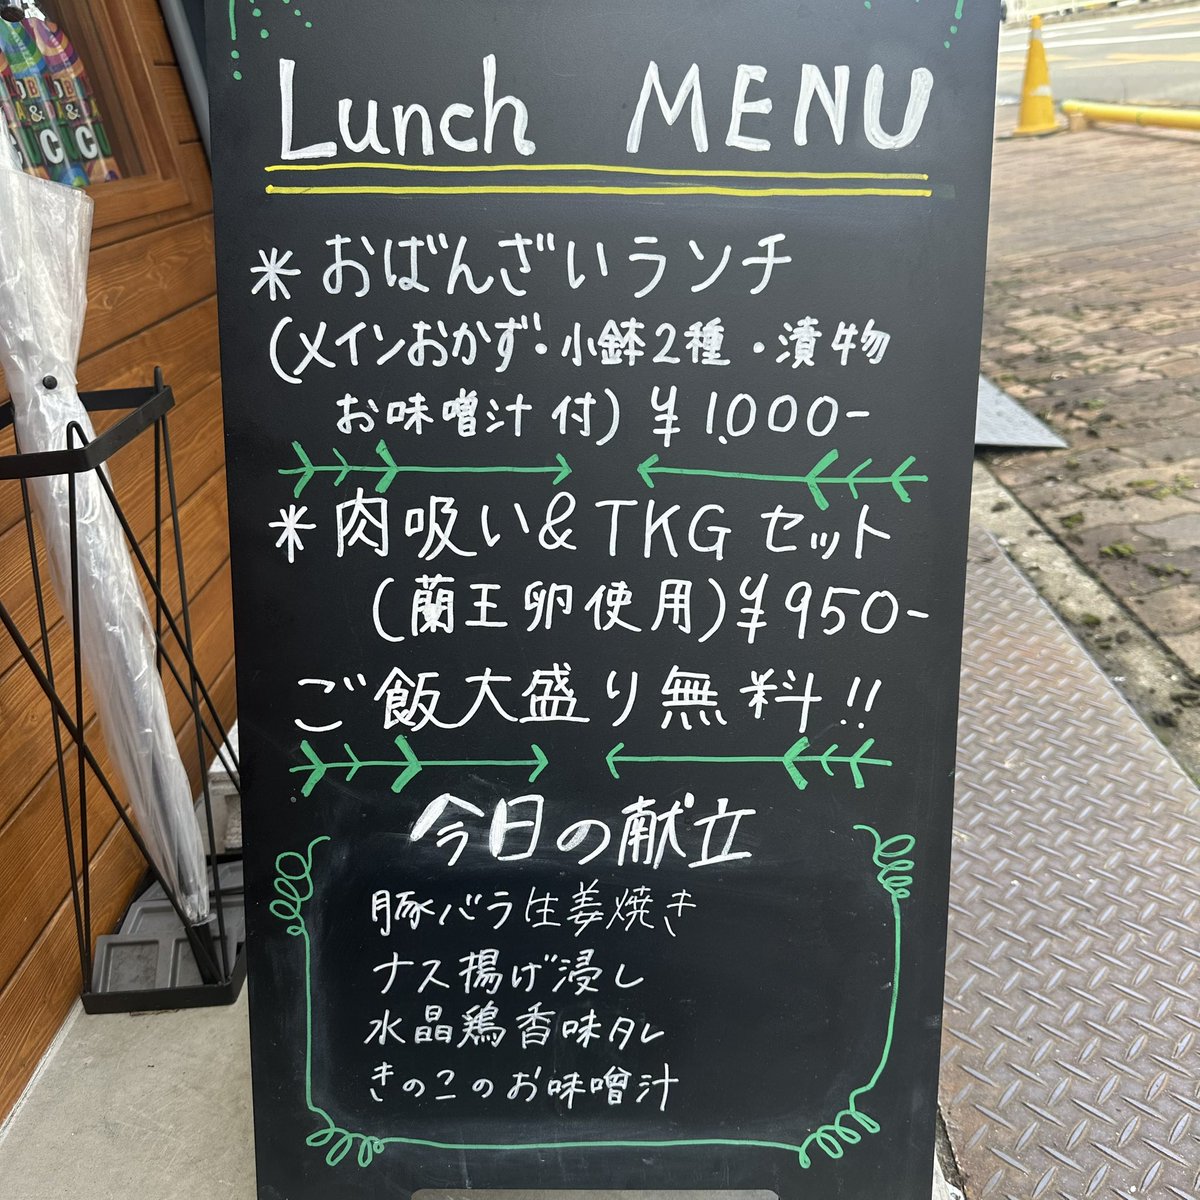 Lunch MENU
*おばんざいランチ
(メインおかず・小鉢2種・漬物
お味噌汁付)¥1,000-
*肉吸い&TKGセット
(蘭王卵使用)¥950-
ご飯大盛り無料!!
今日の献立
豚バラ生姜焼き
ナス揚げ浸し
水晶鶏香味タレ
きのこのお味噌汁